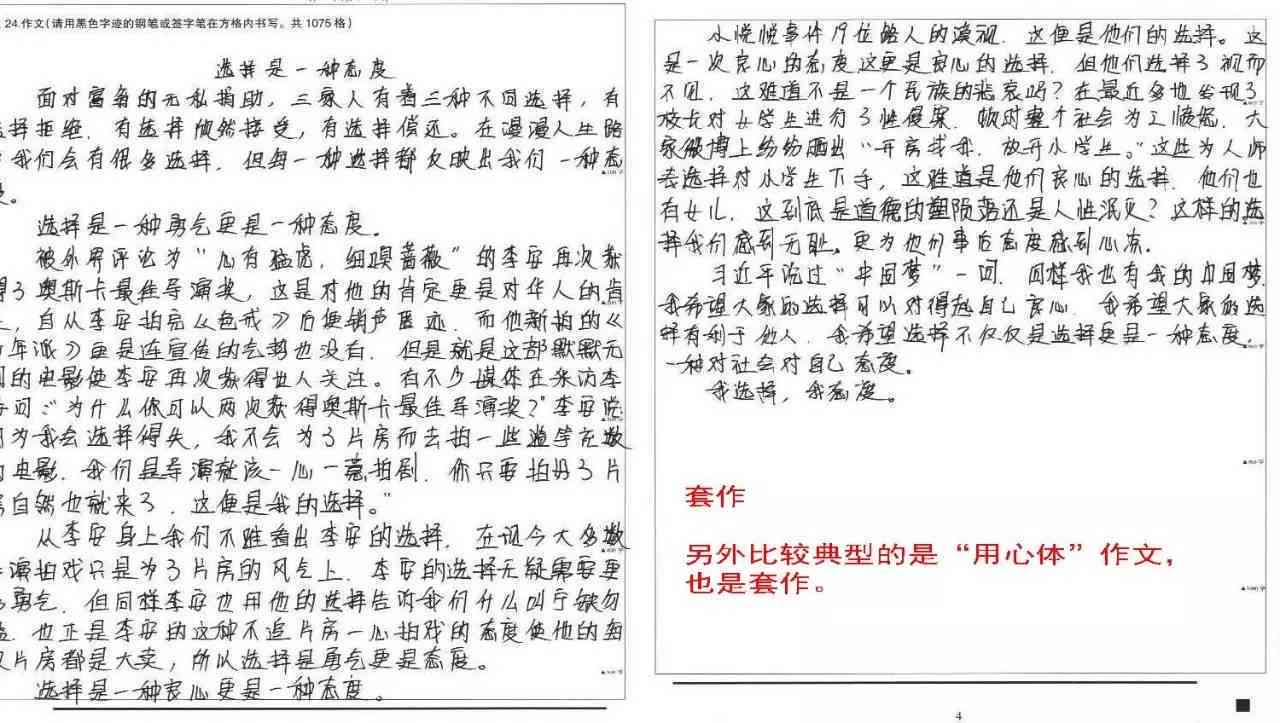 24.作文(请用黑色字迹的钢笔或签字笔在方格内书写。共1075格)
选择是一种态度
面对富翁的无私捐助,三家人有着三种不同选择,有
选择拒绝,有选择欣然接受,有选择偿还。在漫漫人生路
我们会有很多选择,但每一种选择都反映出我们一种态
度。
选择是一种勇气更是一种态度。
被外界评论为“心有猛虎,细嗅蔷薇”的李安再次获
得了奥斯卡最佳导演奖,这是对他的肯定更是对华人的肯
,自从李安拍完《色戒》后便销声匿迹,而他新拍的《
年派》更是连宣传的气势也没有,但是就是这部默默无
的电影使李安再次获得世人关注。有不少媒体在采访李
安问:“为什么你可以两次获得奥斯卡最佳导演奖?”李安说
因为我会选择得失,我不会为了片房而去拍一些滥竽充数
的电影,我们是导演就该一心一意拍剧,你只要拍好了片
房自然也就来了,这便是我的选择。”
从李安身上我们不难看出李安的选择,在现今大多数
导演拍戏只是为了片房的风气上,李安的选择无疑需要更
勇气,但同样李安也用他的选择告诉我们什么叫宁缺勿
滥,也正是李安的这种不追片房一心拍戏的态度使他的每
片房都是大卖,所以选择是勇气更是态度。
选择是一种良心更是一种态度。
小悦悦事件19位路人的漠视,这便是他们的选择。这
是一次良心的态度这更是良心的选择,但他们选择了视而
不见,这难道不是一个民族的悲哀吗?在最近多地出现了
校长对女学生进行了性侵案,顿时整个社会为之愤慨,大
家微博上纷纷晒出“开房找我,放开小学生。”这些为人师
表选择对小学生下手,这难道是他们良心的选择,他们也
有女儿,这到底是道德的塑陨落还是人性泯灭?这样的选
择我们感到无耻。更为他们事后态度感到心冻。
习近平说过“中国梦”一词,同样我也有我的中国梦,
我希望大家的选择可以对得起自己良心,我希望大家的选
择有利于他人,我希望选择不仅仅是选择更是一种态度,
一种对社会对自己态度。
我选择,我态度。
套作
另外比较典型的是“用心体”作文,
也是套作。
4